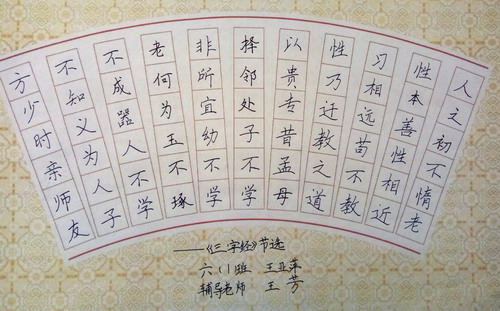 人之初不惰老
性本善性相近
习相远苟不教
性乃迁教之道
以贵专昔孟母
择邻处子不学
非所宜幼不学
老何为玉不琢
不成器人不学
不知义为人子
方少时亲师友
——《三字经》节选
六(1)班 王亚萍
辅导老师 王芳